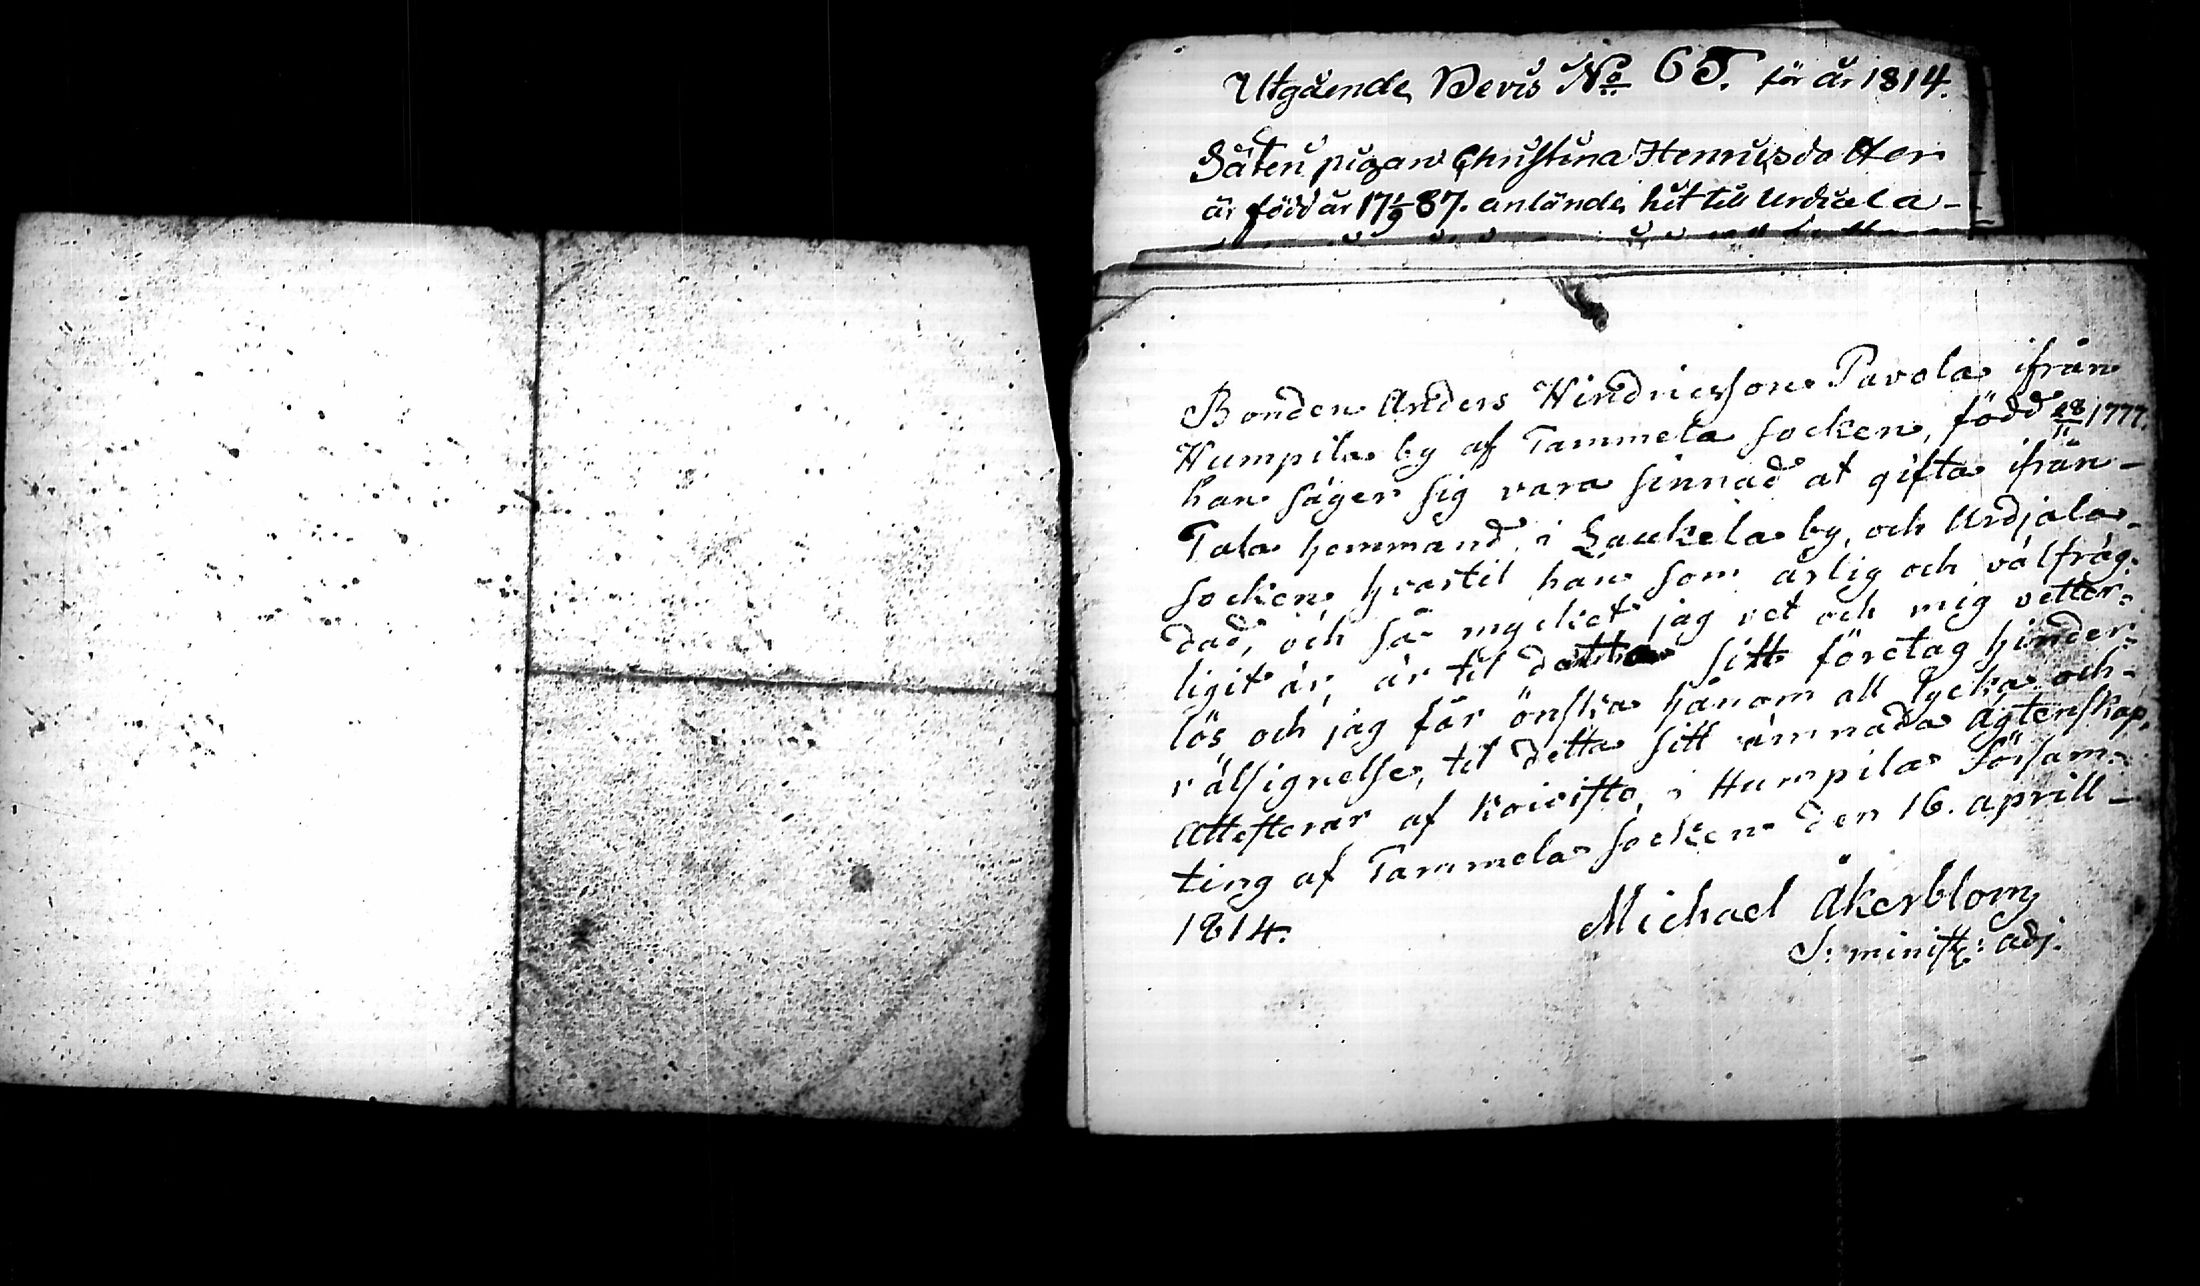 Utgående Bevis No 65. för år 1814.
Säteri pigan Christina Henricsdotter
är född år 17 1/9 87. anlände hit till Urdiala-
Bonden Anders Hindricsson Pavola ifrån
Humpila by af Tammela socken, född 28/11 1777.
han säger sig vara sinnad at gifta ifrån-
Tala hemmand i Laukela by, och Urdjala-
socken, hvartil han som ärlig och välfräg:
dad, och så myckict jag vet och mig vetter-
ligit är, är til detta sitt företag hinder:
lös och jag får önska hänom all lycka och-
välsignelse, til detta sitt ämnada ägtenskap,
Attesterar af Koivisto, i Humpila Församº
ling af Tammela socken den 16. aprill-
1814.
Michael Åkerblom,
S: minist: adj.